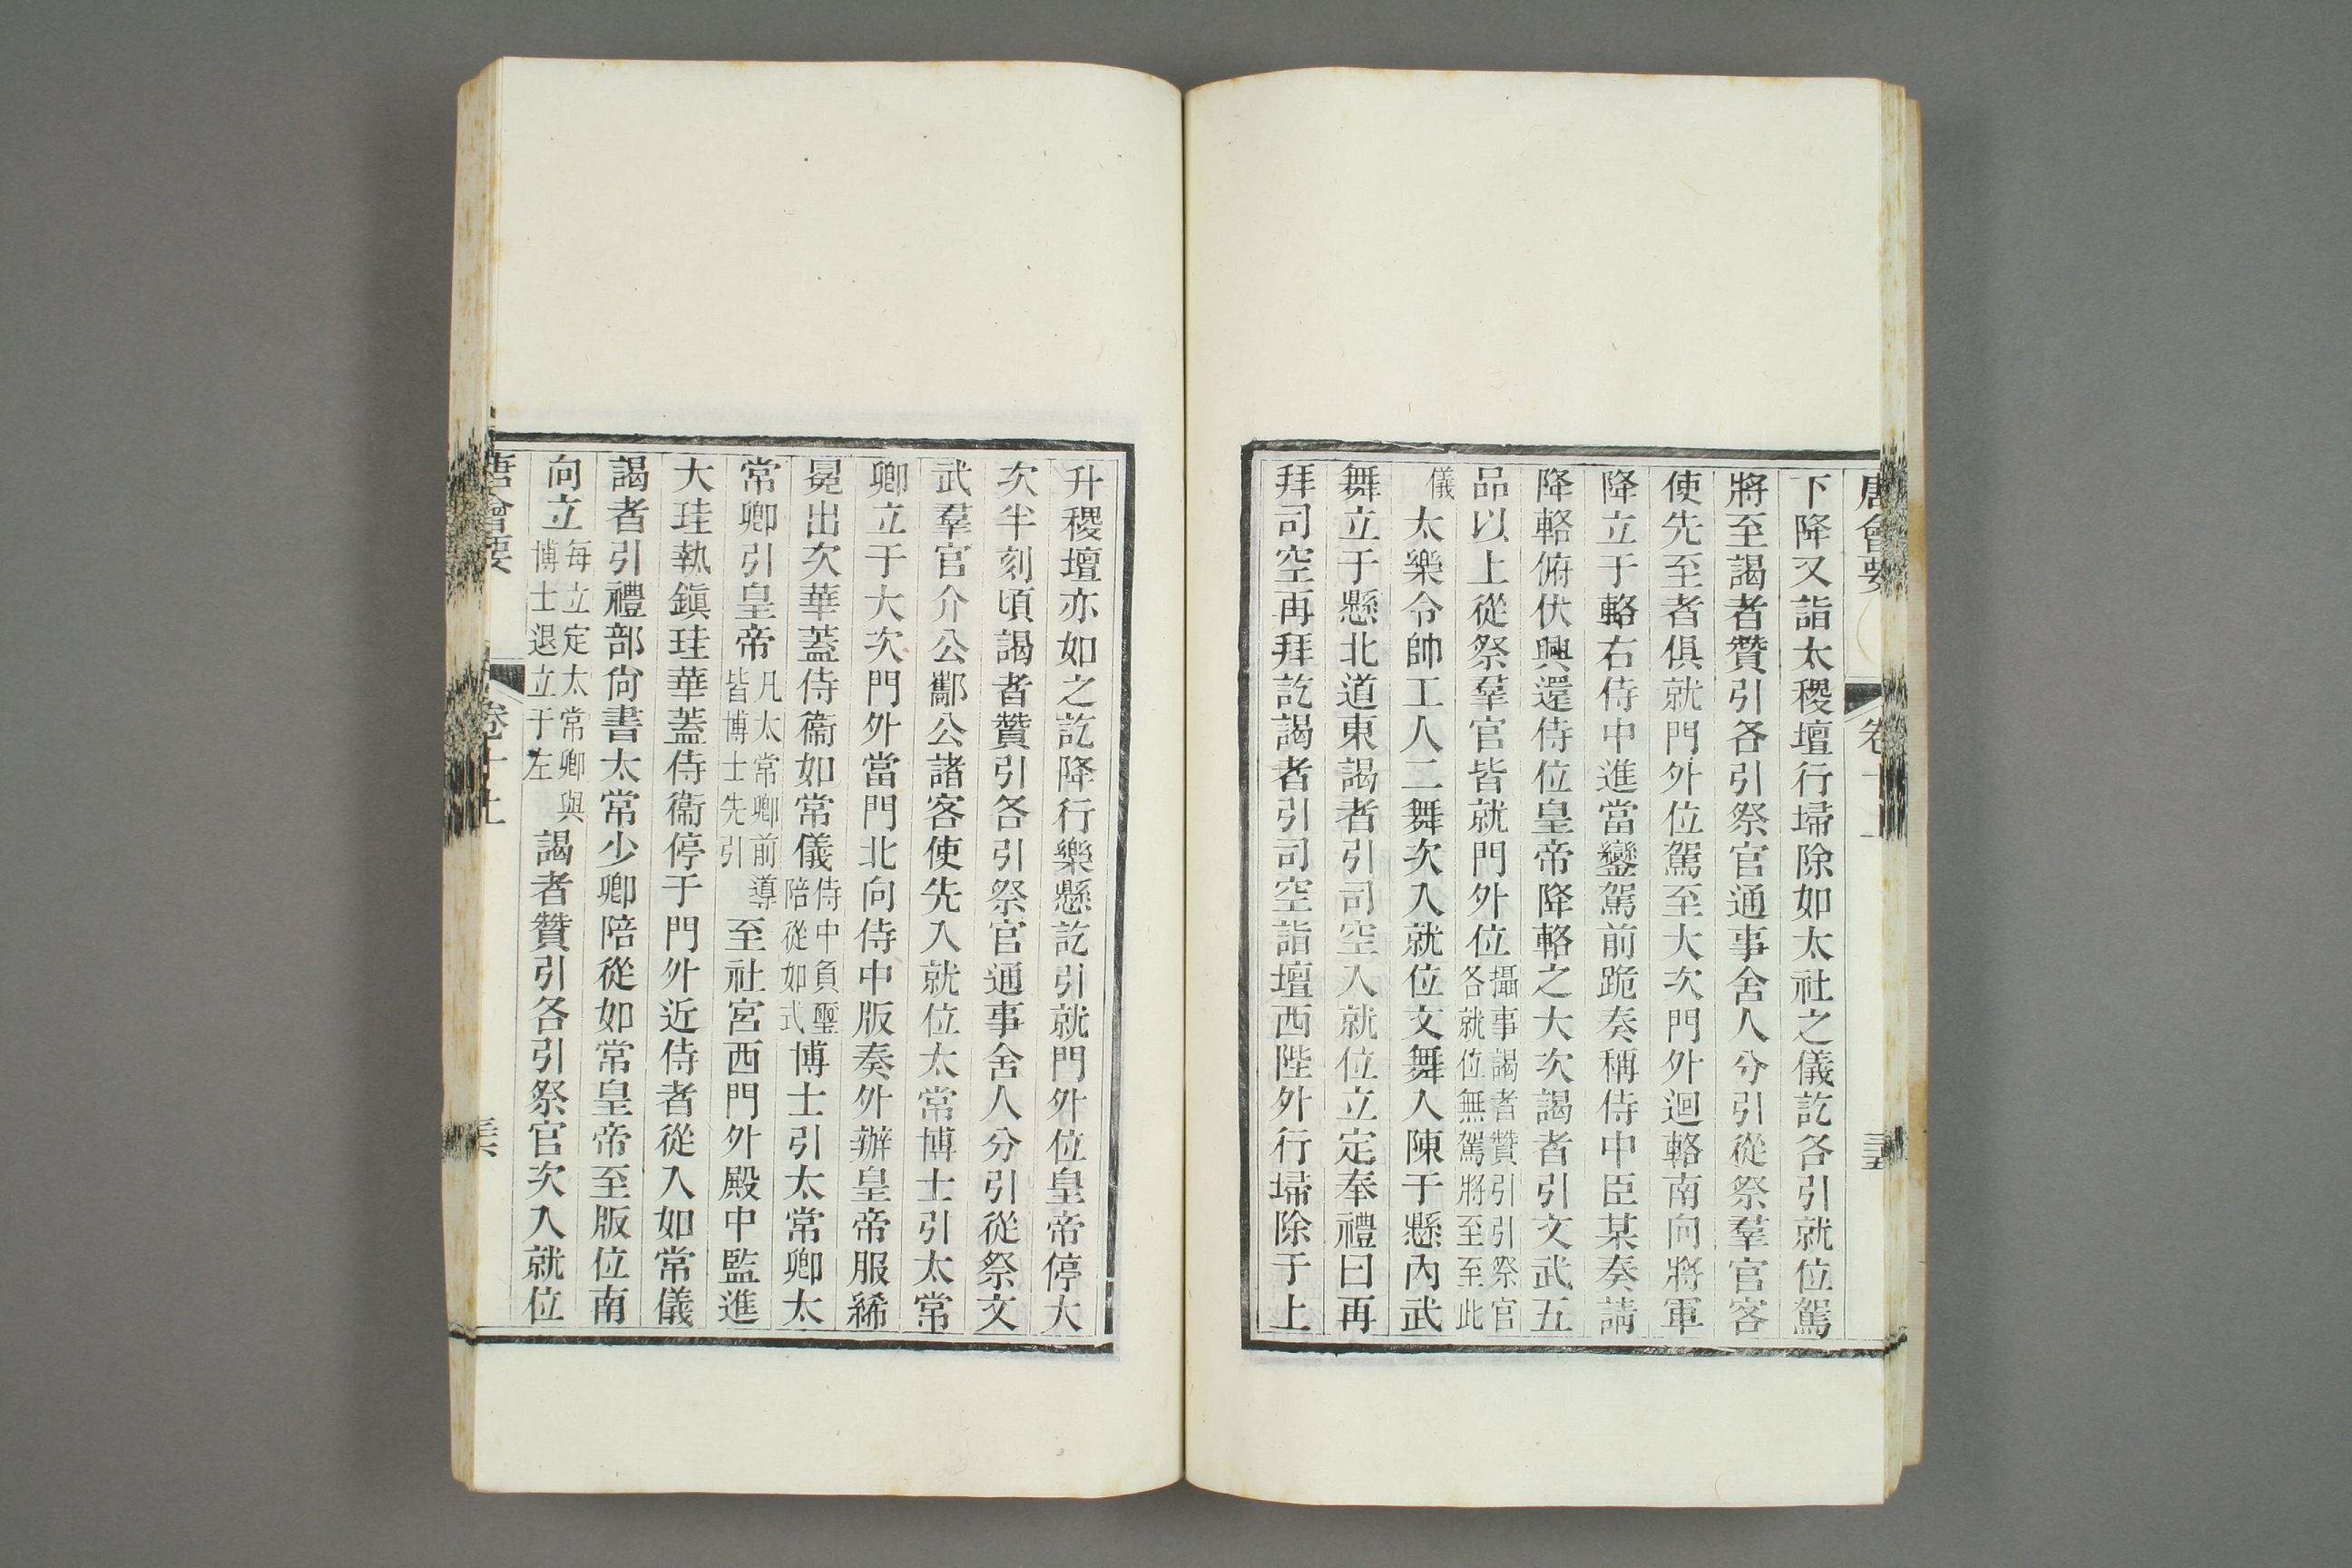 唐會要 卷十
下降又詣太稷壇行埽除如太社之儀訖各引就位駕
將至謁者贊引各引祭官通事舍人分引從祭羣官客
使先至者俱就門外位駕至大次門外迴輅南向將軍
降立于輅右侍中進當鑾駕前跪奏稱侍中臣某奏請
降輅俯伏興還侍位皇帝降輅之大次謁者引文武五
品以上從祭羣官皆就門外位攝事謁者贊引引祭官各就位無駕將至至此
儀太樂令帥工人二舞次入就位文舞入陳于懸內武
舞立于懸北道東謁者引司空入就位立定奉禮曰再
拜司空再拜訖謁者引司空詣壇西陛外行埽除于上
升稷壇亦如之訖降行樂懸訖引就門外位皇帝停大
次半刻頃謁者贊引各引祭官通事舍人分引從祭文
武羣官介公酅公諸客使先入就位太常博士引太常
卿立于大次門外當門北向侍中版奏外辦皇帝服絺
冕出次華蓋侍衞如常儀侍中負璽陪從如式博士引太常卿太
常卿引皇帝凡太常卿前導皆博士先引至社宮西門外殿中監進
大珪執鎭珪華蓋侍衞停于門外近侍者從入如常儀
謁者引禮部尙書太常少卿陪從如常皇帝至版位南
向立每立定太常卿與博士退立于左謁者贊引各引祭官次入就位
唐會要 卷十上